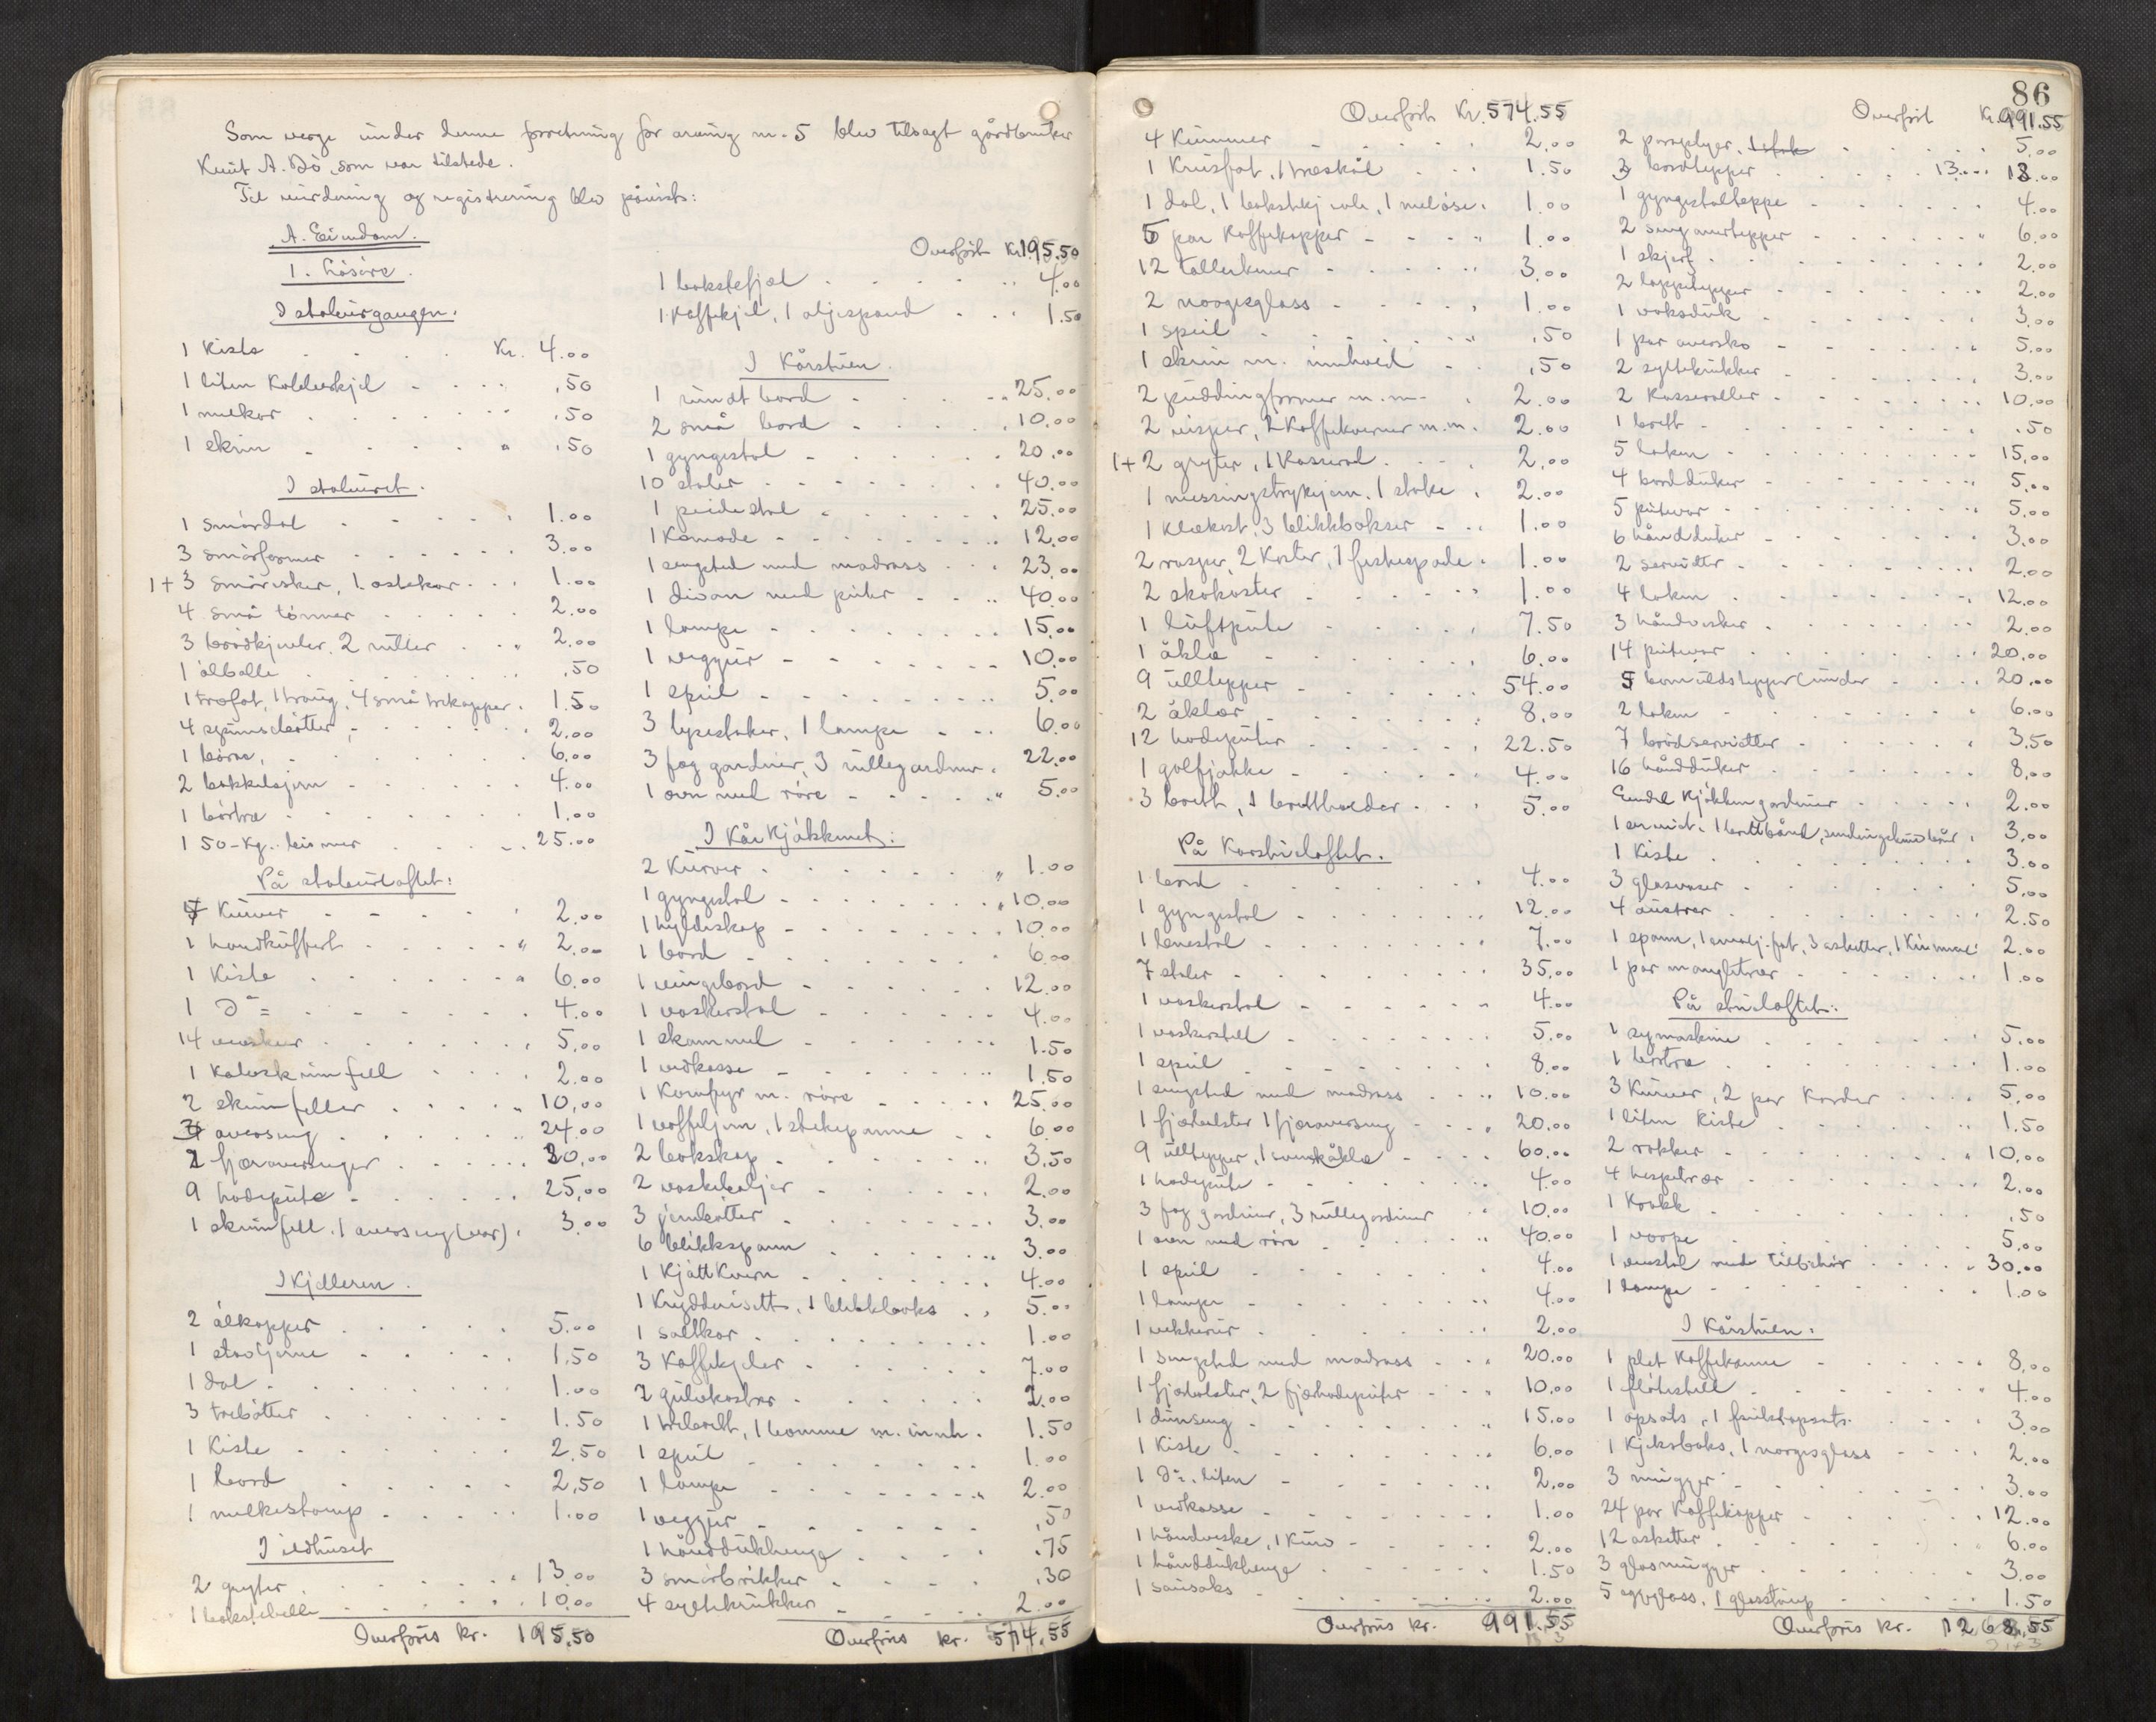 Som verge under denne forretning for arving nr. 5 blev tilsagt gårdbruker
Knut A. Bö, som var tilstede.
Til vurdering og registrering blev påvist:
A. Eiendom.
1. Lösöre.
I stabursgangen.
1 kiste Kr. 4.00
1 liten kobberkjel .50
1 melkar .50
1 skrin " .50
I staburet.
1 smördal 1.00
3 smörformer 3.00
1+3 smöresker, 1 ostekar 1.00
4 små tönner 2.00
3 brödkjevler, 2 ruller 2.00
1 ölbolle .50
1 trefat, 1 traug, 4 små trekopper 1.50
4 spinnebötter 2.00
1 börse, 6.00
2 bakkelsjern 4.00
1 börtre 1.00
1 50-kg. bismer 25.00
På stabursloftet:
7 kurver 2.00
1 handkuffert " 2.00
1 kiste " 6.00
1 do 4.00
14 vesker 5.00
1 kalveskinnfell 2.00
2 skinnfeller 10.00
4 overseng 24.00
2 fjæroversenger 30.00
9 hodepute 25.00
1 skinnfell, 1 overseng (var) 3.00
I kjelleren.
2 ölkopper 5.00
1 stavkjerne 1.50
1 dal 1.00
3 trebötter 1.50
1 kiste 2.50
1 bord 2.50
1 melkestamp 1.00
I ildhuset
2 gryter 13.00
1 bakstehelle 10.00
Overföres kr. 195.50
Overfört Kr. 195.50
1 bakstefjöl 4.00
1 kaffekjel, 1 oljespand 1.50
I Kårstuen.
1 rundt bord 25.00
2 små bord 10.00
1 gyngestol 20.00
10 stoler 40.00
1 peisestol 25.00
1 komode 12.00
1 sengsted med madrass 23.00
1 divan med puter 40.00
1 lampe 15.00
1 veggur 10.00
1 speil 5.00
3 lysestaker, 1 lampe 6.00
3 fag gardiner, 3 rullegardiner 22.00
1 ovn med röre " 5.00
I Kårkjökkenet:
2 kurver " 1.00
1 gyngestol 10.00
1 hyldeskap 10.00
1 bord 6.00
1 vingebord 12.00
1 vaskerstol 4.00
1 skammel 1.50
1 vedkasse 1.50
1 komfyr m. röre 25.00
1 vaffeljern, 1 stekepanne 6.00
2 bokskap 3.50
2 vaskebaljer 2.00
3 jernbötter 3.00
6 blikkspann 3.00
1 kjöttkvern 4.00
1 krydderisett, 1 blikkboks 5.00
1 saltkar 1.00
3 kaffekjeler 7.00
2 gulvkoster 2.00
1 trebrett, 1 tomme m. innh. 1.50
1 speil 1.00
1 lampe 2.00
1 veggur .50
1 hånddukhenge .75
3 smörbrikker .30
4 syltekrukker 2.00
Overföres kr. 574.55
Overfört Kr. 574.55
4 kummer 2.00
1 krusfat, 1 vaskål 1.50
1 dal, 1 bakstekjevle, 1 melöse 1.00
5 par kaffekopper 1.00
12 tallerkener 3.00
2 norgesglass 1.00
1 speil .50
1 skrin m. innhold .50
2 puddingformer m.m. 2.00
2 visper, 2 kaffekverner m.m. 2.00
1+2 gryter, 1 kasserol 2.00
1 messingstrykejern, 1 stake 2.00
1 klækost, 3 blikkbokser 1.00
2 rasper, 2 koster, 1 feskespade 1.00
2 skokoster 1.00
1 luftpute 7.50
1 åkle 6.00
9 ulltepper 54.00
2 åklær 8.00
12 hodeputer 22.50
1 golfjakke 4.00
3 brett, 1 brettholder 5.00
På Kårstueloftet.
1 bord 4.00
1 gyngestol 12.00
1 lenestol 7.00
7 stoler 35.00
1 vaskerstol 4.00
1 vaskestell 5.00
1 speil 8.00
1 sengsted med madrass 10.00
1 fjærbolster 1 fjæroverseng 20.00
9 ulltepper, 1 svenskåkle 60.00
1 hodepute 4.00
3 fag gardiner, 3 rullegardiner 10.00
1 ovn med röre 40.00
1 speil 4.00
1 lampe 4.00
1 vekkerur 2.00
1 sengsted med madrass 20.00
1 fjærbolster, 2 fjærhodeputer 10.00
1 dunseng 15.00
1 kiste 6.00
1 do. liten 2.00
1 vedkasse 1.00
1 håndveske, 1 kurv 2.00
1 hånddukhenge 1.50
1 sausaks 2.00
Overföres kr. 991.55
86
Overfört Kr. 991.55
2 paraplyer, 1 stok 5.00
3 bordtepper 13.00 13.00
1 gyngestolteppe 4.00
2 sengomtepper 6.00
1 skjerf 2.00
2 lappetepper 2.00
1 voksduk 3.00
1 par oversko 5.00
2 syltekrukker 3.00
2 kasseroller 10.00
1 brett .50
5 laken 15.00
4 bordduker 5.00
5 putevar 5.00
6 hånd duker 3.00
2 servietter 2.00
4 laken 12.00
3 håndvesker 2.00
14 putevar 20.00
5 bomuldstepper (under 20.00
2 laken 6.00
7 brödservietter 3.50
16 hånd duker 8.00
Endel kjökkengardiner 2.00
3.00
1 kiste 3.00
3 glasvaser 5.00
4 austrer 2.50
1 spann, 1 emalj. fat, 3 asketter, 1 kumme 2.00
1 par mangletrær 1.00
På stueloftet:
1 symaskine 5.00
1 börtre 1.00
3 kurver, 2 par karder 5.00
1 liten kiste 1.50
2 rokker 10.00
4 hespetrær 2.00
1 krakk .50
1 vorpe 5.00
1 vevstol med tilbehör 30.00
1 lampe 1.00
I Kårstuen:
1 plet kaffekanne 8.00
1 flötestell 4.00
1 opsats, 1 fruktopsats 3.00
1 kjeksboks, 1 norgesglass 2.00
3 mugger 3.00
24 par kaffekopper 12.00
12 asketter 6.00
3 glasmugger 3.00
5 eggglass, 1 glasstrup 1.50
Overföres kr. 1268.55